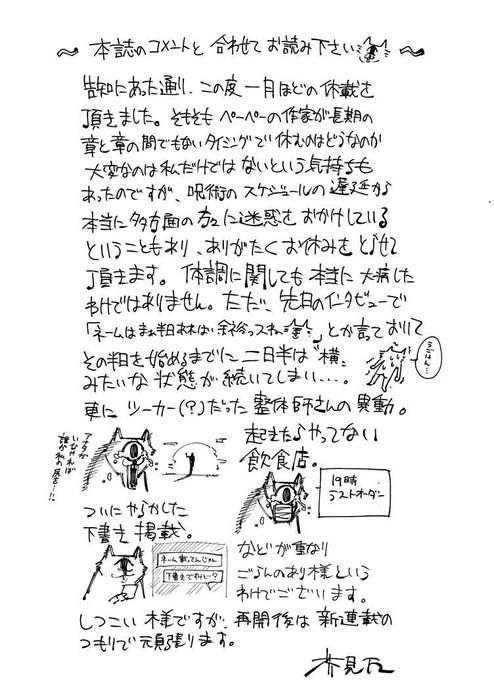 〜 本誌のコメントと 合わせて お読み下さい 〜
告知にあった通り、この度一月ほどの休載を
頂きました。そもそもペーペーの作家が長期の
章と章の間でもないタイミングで休むのはどうなのか
大変なのは私だけではないという気持ちも
あったのですが、呪術のスケジュールの遅延から
本当に多方面の方々に迷惑をおかけしている
ということもあり、ありがたくお休みをとらせて
頂きます。体調に関しても本当に大病した
わけではありません。ただ、先日のインタビューで
「ネームはまぁ半日あれば、余裕っスね」とか言っておいて
その半日を始めるまでに二日半は“横”
みたいな状態が続いてしまい…。
更にツーカー(?)だった整体師さんの異動。
アナタが
いなければ
誰が私の
起きたらやってない
飲食店。
19時
ラストオーダー
ついにやらかした
下書き掲載。
ネーム載ってんじゃん
下書きですけど?
などが重なり
ごらんのあり様という
わけでございます。
しつこい様ですが、再開後は新連載の
つもりで頑張ります。
芥見下々